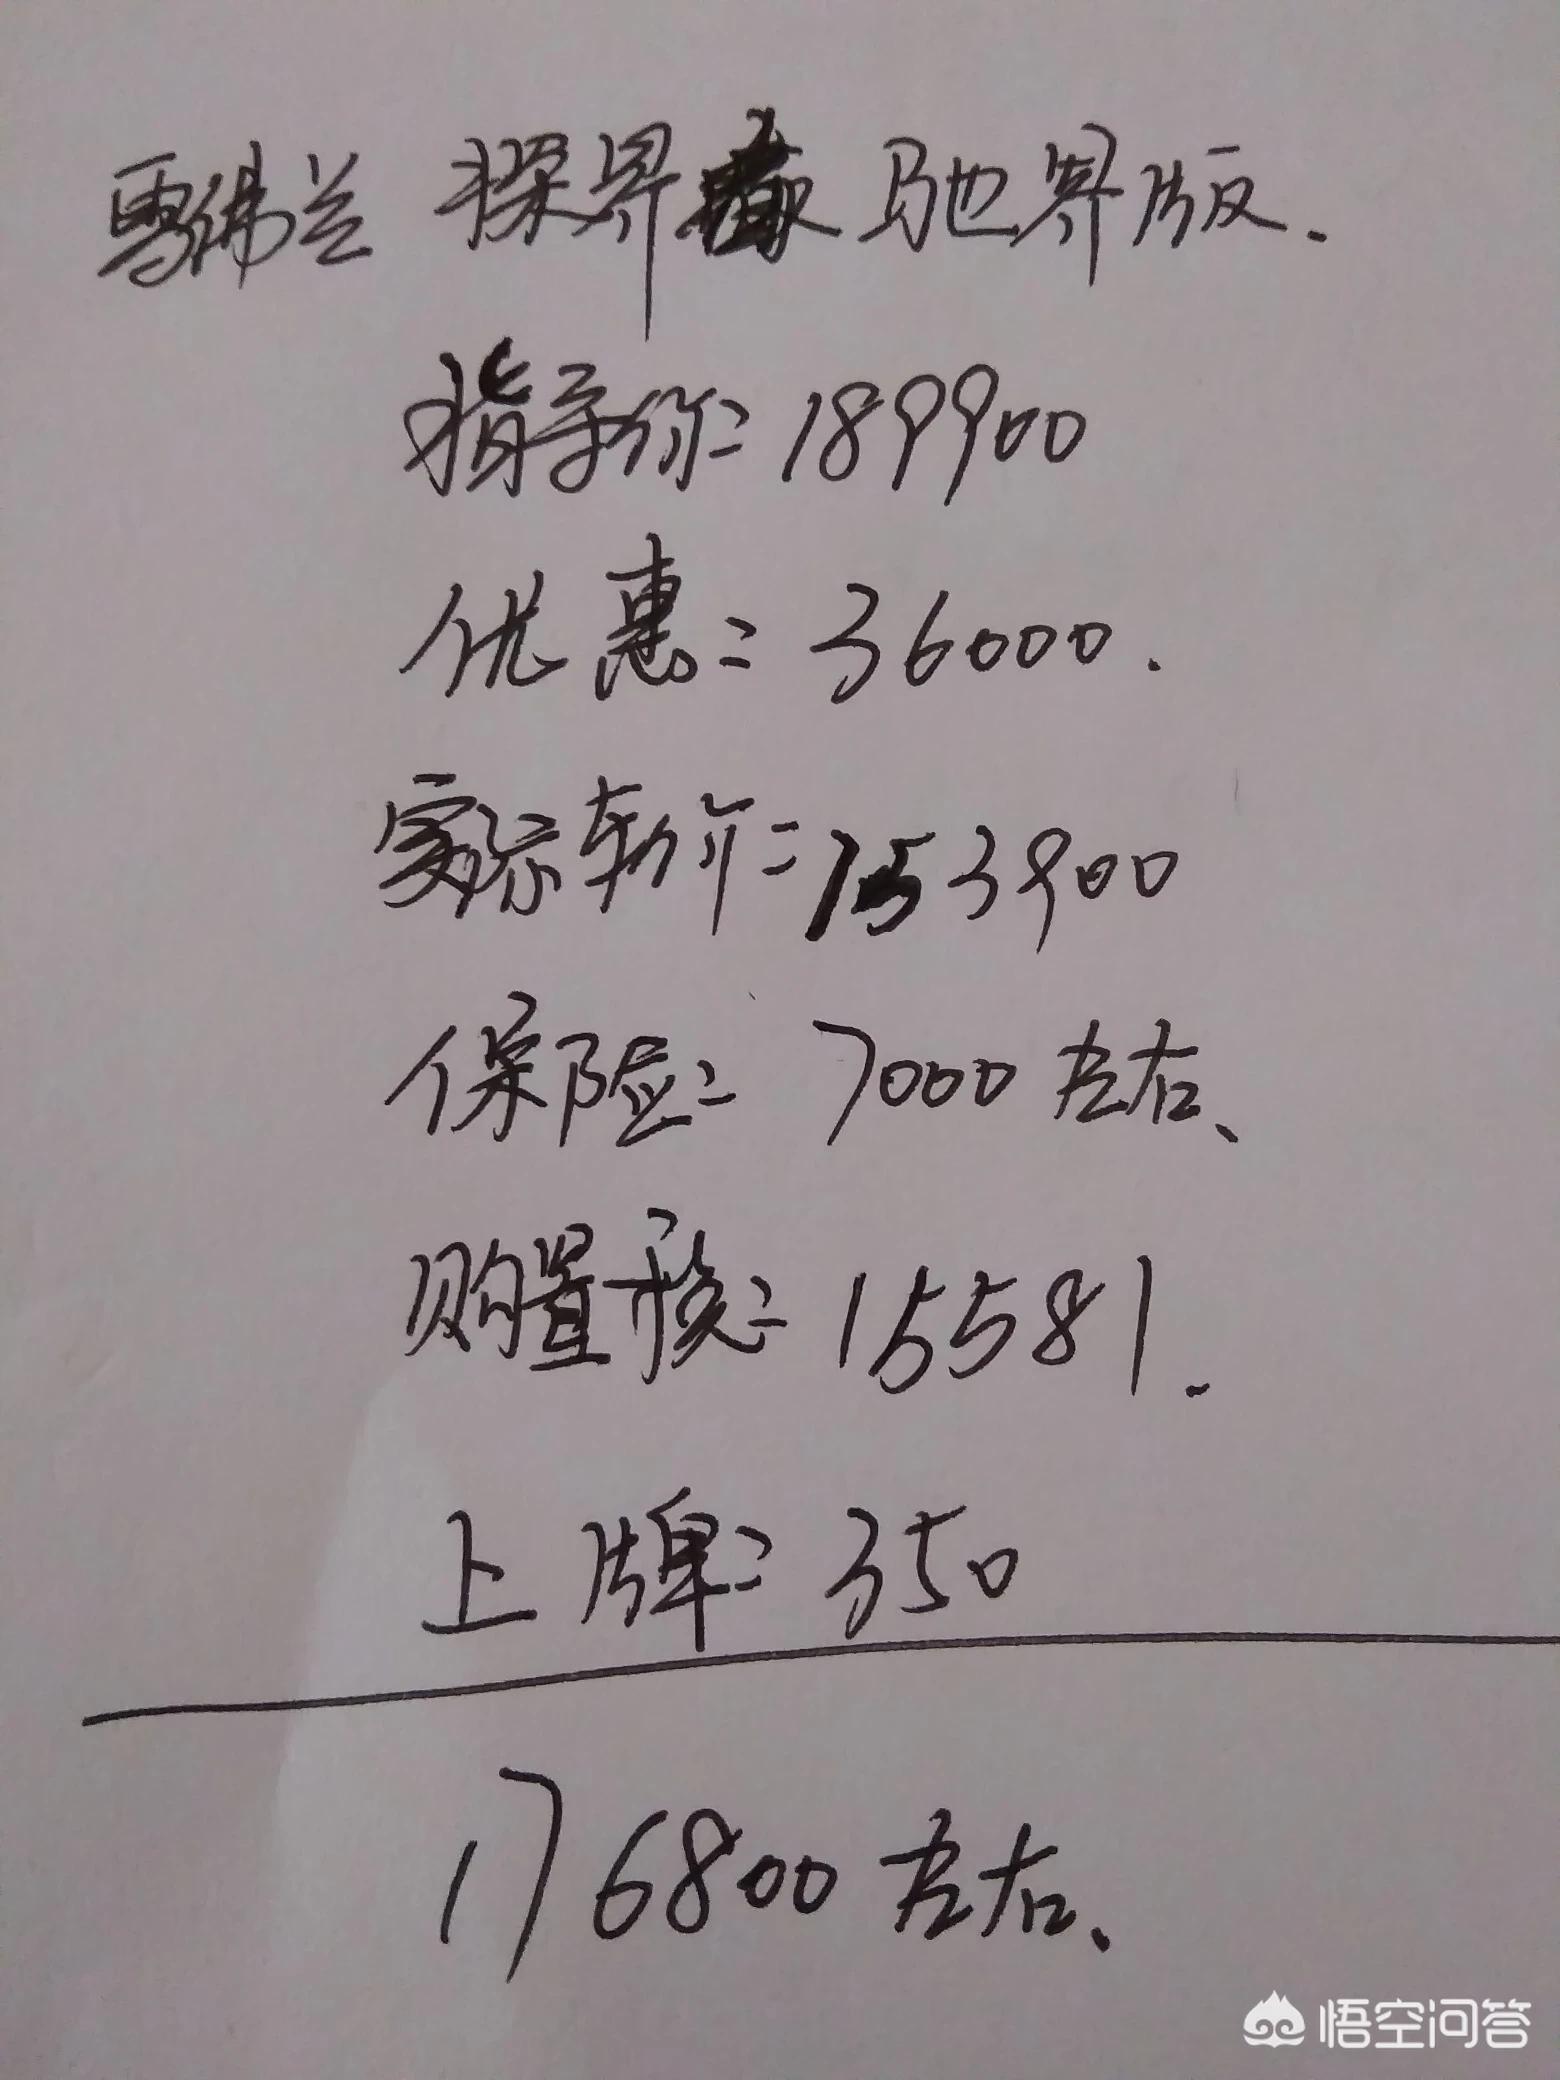 雪佛兰 探界 驰界版.
指导价: 189900
优惠: 36000.
实际车价: 153900
保险: 7000左右、
购置税: 15581.
上牌: 350
176800左右、
悟空问答